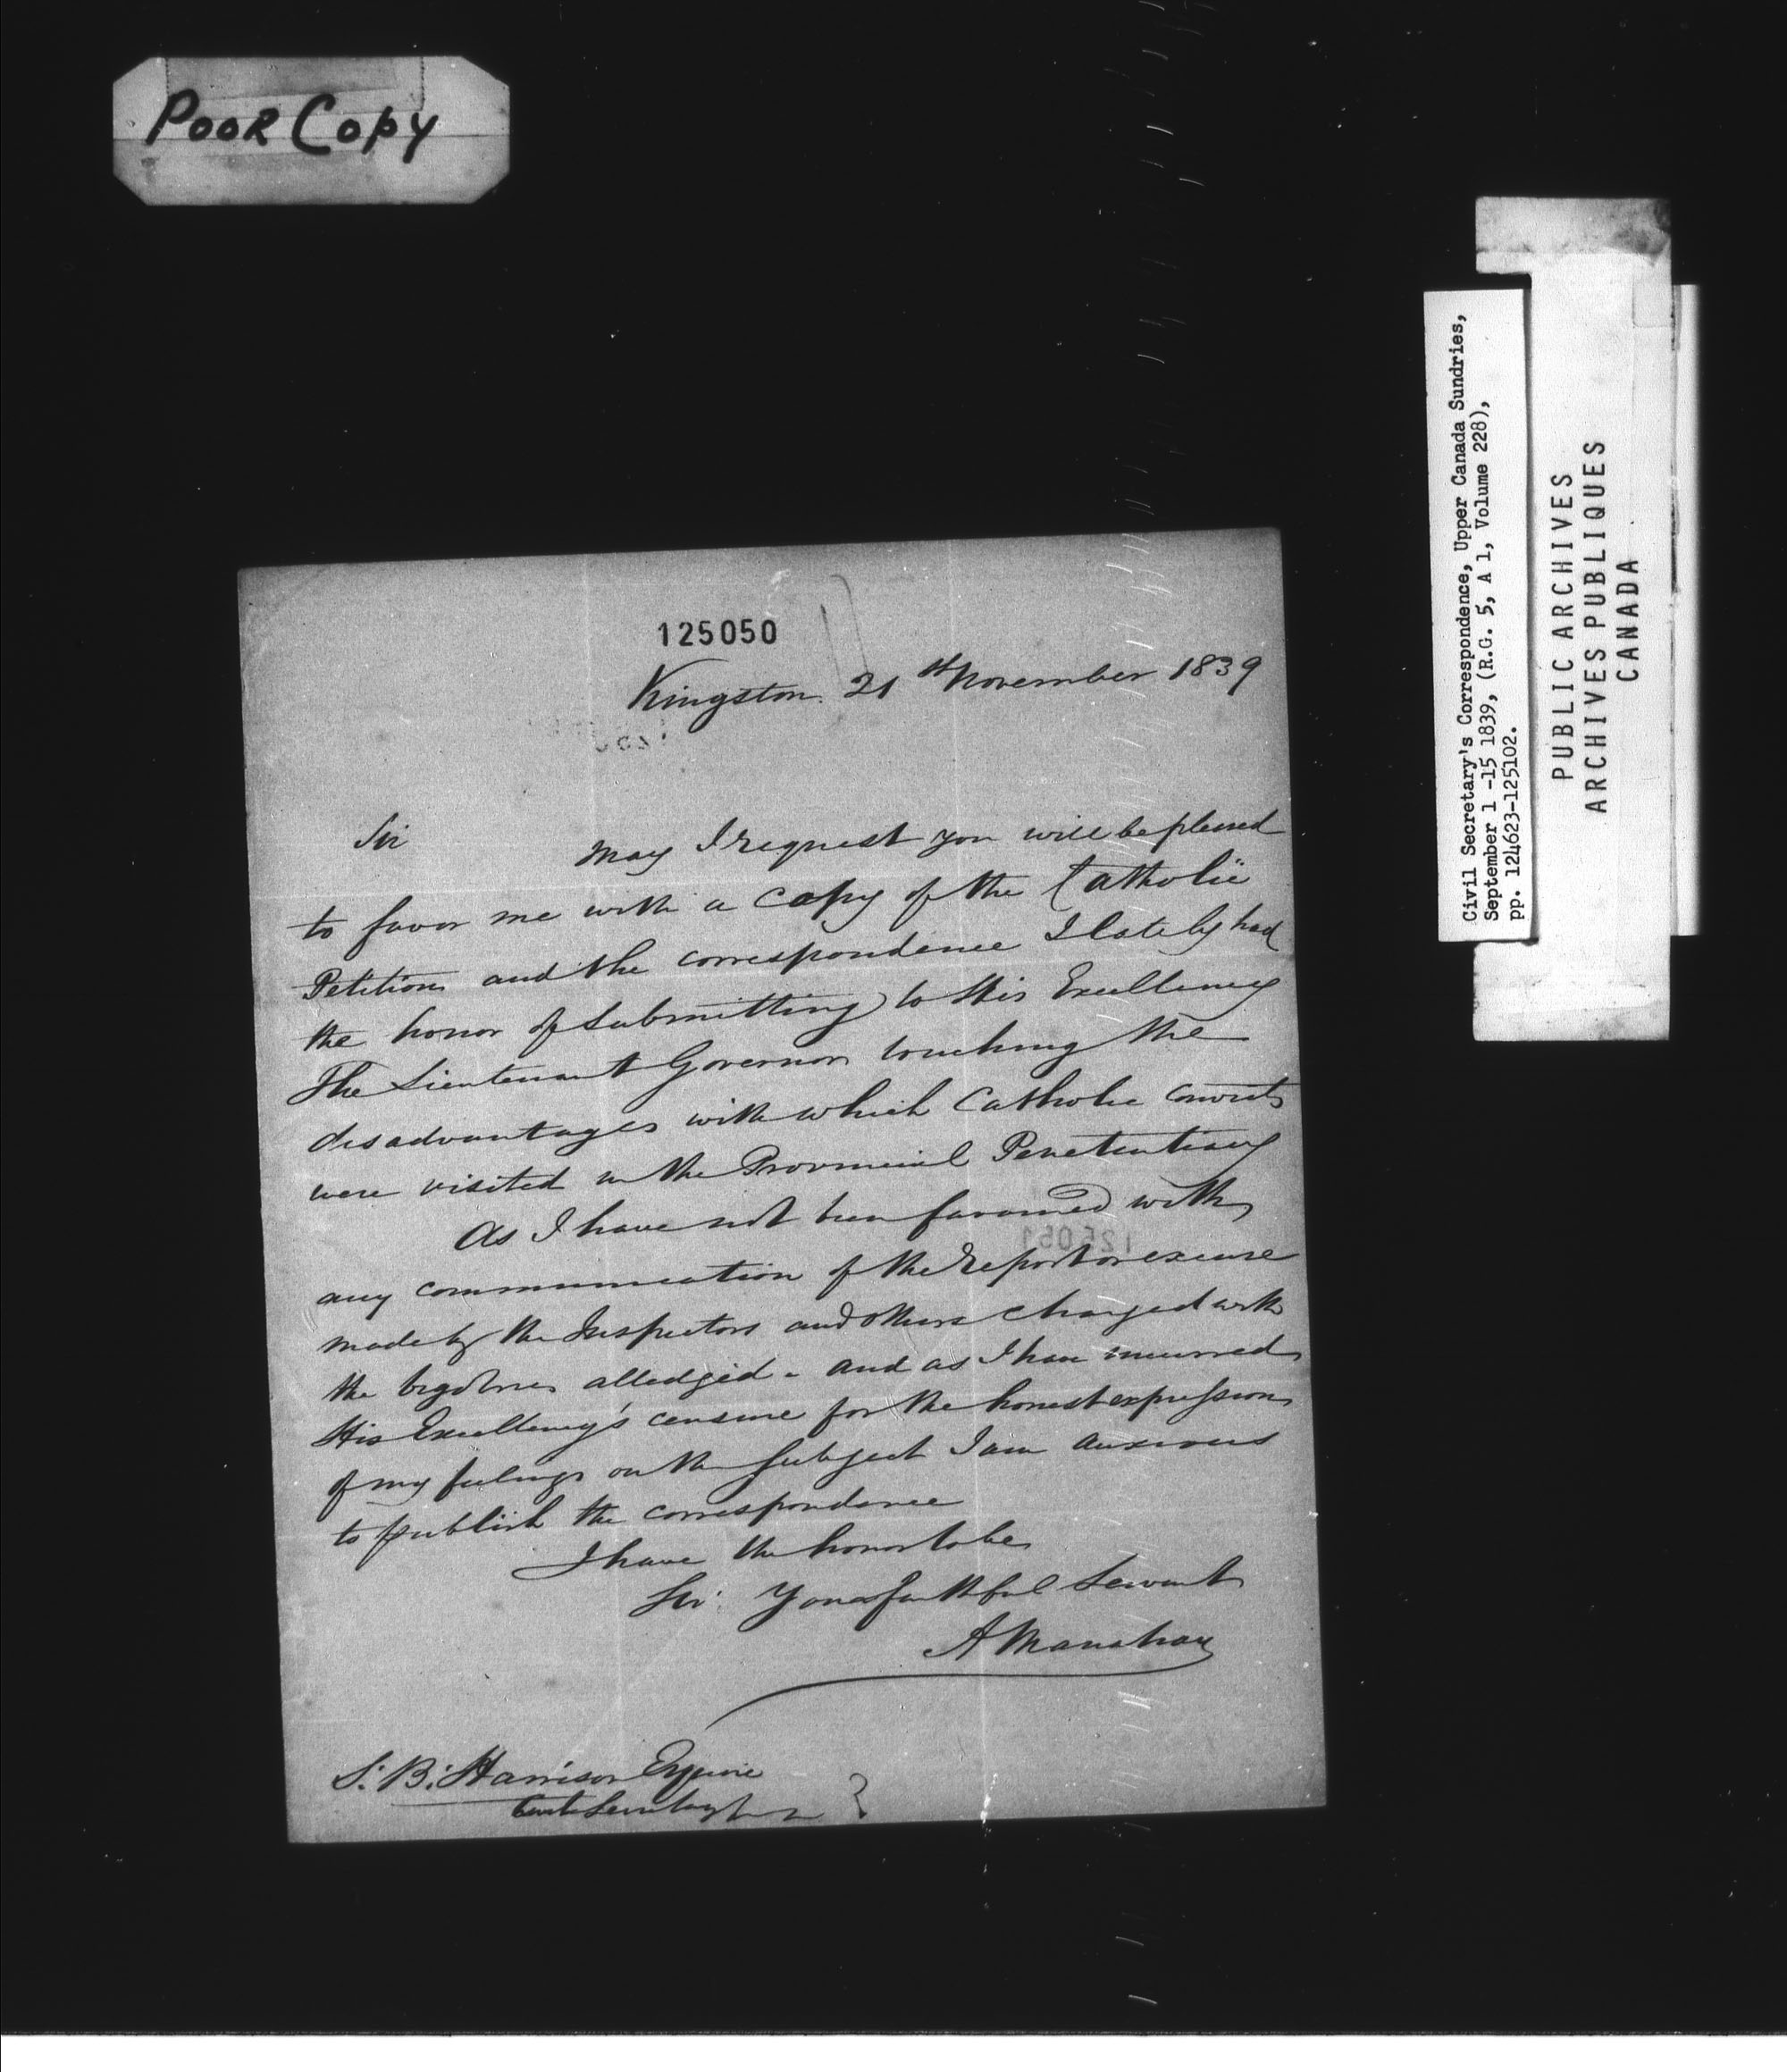 Poor Copy
Civil Secretary's Correspondence, Upper Canada Sundries,
September 1 -15 1839, (R.G. 5, A 1, Volume 228),
pp. 124623-125102.
PUBLIC ARCHIVES
ARCHIVES PUBLIQUES
CANADA
125050
Kingston. 21st November 1839
Sir May I request you will be pleased
to favor me with a copy of the Catholic
Petition and the correspondence I lately had
the honor of submitting to His Excellency
The Lieutenant Governor touching the
disadvantages with which Catholic convicts
were visited in the Provincial Penetentiary
As I have not been favored with
any communication of the report or excuse
made by the Inspectors and others charged with
the bigotries alledged - and as I have incurred
His Excellency's censure for the honest expression
of my feelings on the subject I am anxious
to publish the correspondence
I have the honor to be
Sir Your faithful Servant
A Manahan
S. B. Harrison Esquire
125051